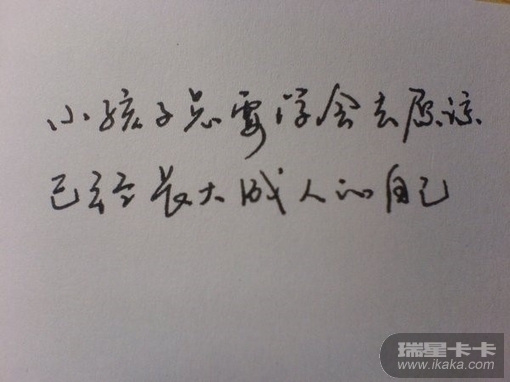 小孩子总要学会去原谅
已经长大成人的自己
瑞星卡卡
www.ikaka.com